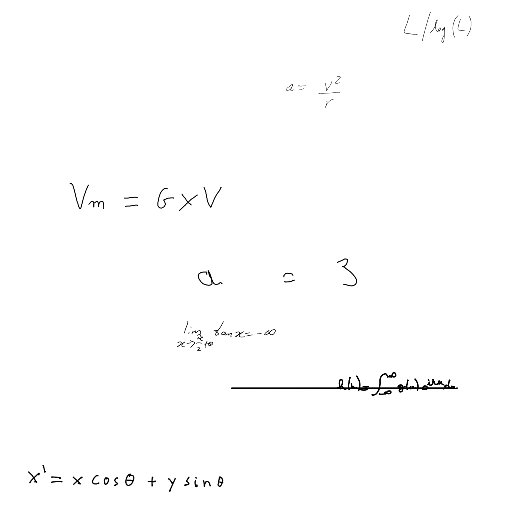 L/log(L)
a = v²/r
Vm = G×V
a = 3
lim x→π/2+0 tan x = -∞
x' = x cosθ + y sinθ